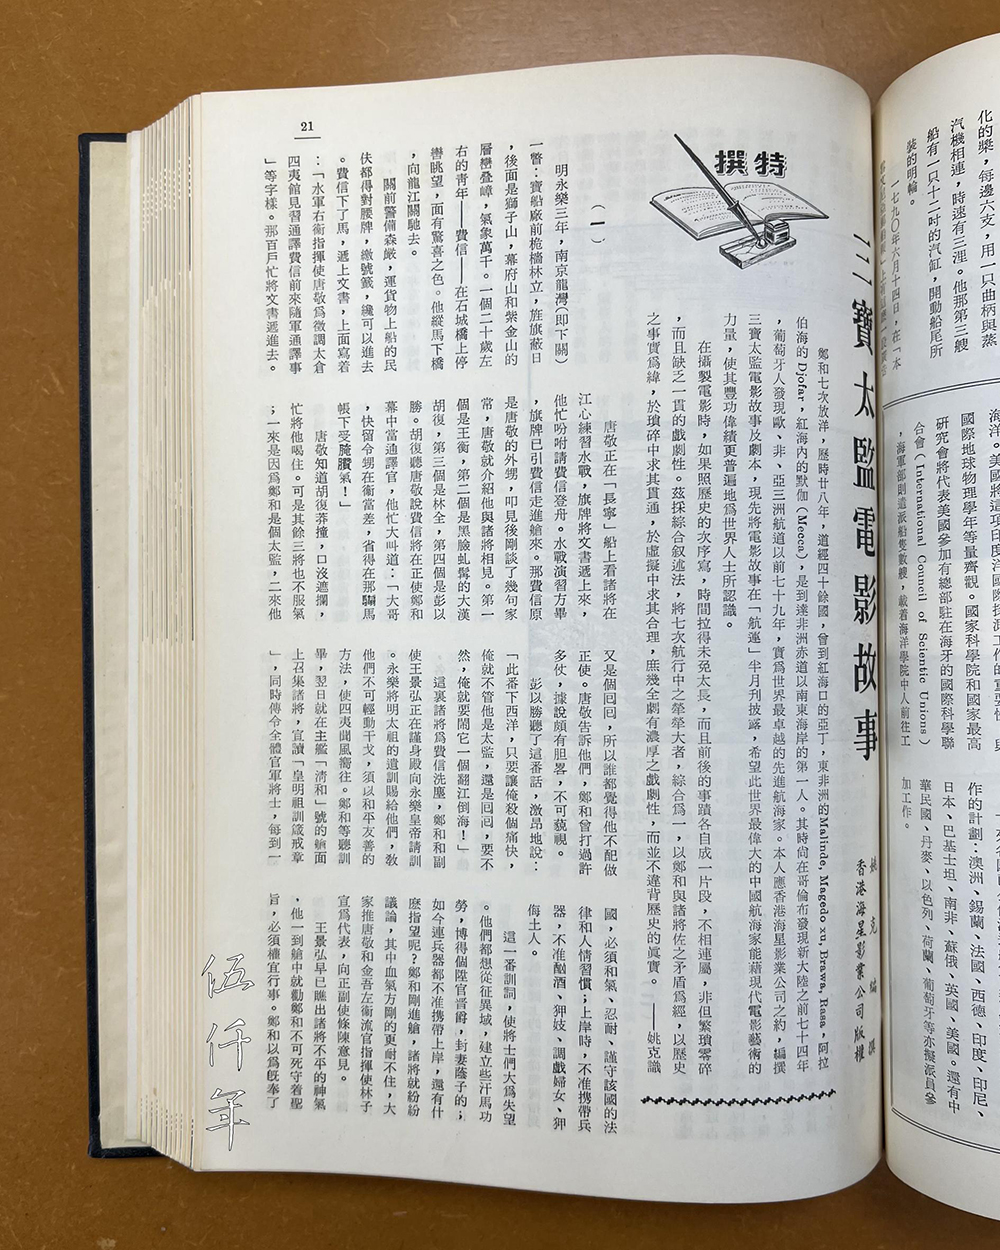 化的槳，每邊六支，用一只曲柄與蒸
汽機相連，時速有三浬。他那第三艘
船有一只十二吋的汽缸，開動船尾所
裝的明輪。
一七九〇年六月十四日，在一本
海洋。美國將這項印度洋國際探測工作的重要性，與
國際地球物理學年等量齊觀。國家科學院和國家最高
研究會將代表美國參加有總部駐在海牙的國際科學聯
合會（International Council of Scientific Unions）
，海軍部則遣派船隻數艘，載着海洋學院中人前往工
作的計劃：澳洲、錫蘭、法國、西德、印度、印尼、
日本、巴基士坦、南非、蘇俄、英國、美國。還有中
華民國、丹麥、以色列、荷蘭、葡萄牙等亦擬派員參
加工作。
特撰
三寶太監電影故事
姚克編撰
香港海星影業公司版權
鄭和七次放洋，歷時廿八年，道經四十餘國，曾到紅海口的亞丁，東非洲的Malinde, Magedo xu, Brawa, Rasa，阿拉
伯海的Djofar，紅海內的默伽（Mecca），是到達非洲赤道以南東海岸的第一人。其時尙在哥倫布發現新大陸之前七十四年
，葡萄牙人發現歐、非、亞三洲航道以前七十九年，實爲世界最卓越的先進航海家。本人應香港海星影業公司之約，編撰
三寶太監電影故事及劇本，現先將電影故事在「航運」半月刊披露，希望此世界最偉大的中國航海家能藉現代電影藝術的
力量，使其豐功偉績更普遍地爲世界人士所認識。
在攝製電影時，如果照歷史的次序寫，時間拉得未免太長，而且前後的事蹟各自成一片段，不相連屬，非但繁瑣零碎
，而且缺乏一貫的戲劇性。茲採綜合叙述法，將七次航行中之犖犖大者，綜合爲一，以鄭和與諸將佐之矛盾爲經，以歷史
之事實爲緯，於瑣碎中求其貫通，於虛擬中求其合理，庶幾全劇有濃厚之戲劇性，而並不違背歷史的眞實。——姚克識
（一）
明永樂三年，南京龍灣（即下關）
一瞥：寶船廠前桅檣林立，旌旗蔽日
，後面是獅子山，幕府山和紫金山的
層巒叠嶂，氣象萬千。一個二十歲左
右的青年——費信——在石城橋上停
轡眺望，面有驚喜之色。他縱馬下橋
，向龍江關馳去。
關前警備森嚴，運貨物上船的民
伕都得對腰牌，繳號籤，纔可以進去
。費信下了馬，遞上文書，上面寫着
：「水軍右衛指揮使唐敬爲徵調太倉
四夷館見習通譯費信前來隨軍通譯事
」等字樣。那百戶忙將文書遞進去。
唐敬正在「長寧」船上看諸將在
江心練習水戰，旗牌將文書遞上來，
他忙吩咐請費信登舟。水戰演習方畢
，旗牌已引費信走進艙來。那費信原
是唐敬的外甥，叩見後剛談了幾句家
常，唐敬就介紹他與諸將相見。第一
個是王衡，第二個是黑臉虬髯的大漢
胡復，第三個是林全，第四個是彭以
勝。胡復聽唐敬說費信將在正使鄭和
幕中當通譯官，他忙大叫道：「大哥
，快留令甥在衞當差，省得在那騸馬
帳下受腌臢氣！」
唐敬知道胡復莽撞，口沒遮攔，
忙將他喝住。可是其餘三將也不服氣
；一來是因爲鄭和是個太監，二來他
又是個囘囘，所以誰都覺得他不配做
正使。唐敬告訴他們，鄭和曾打過許
多仗，據說頗有胆畧，不可藐視。
彭以勝聽了這番話，激昂地說：
「此番下西洋，只要讓俺殺個痛快，
俺就不管他是太監，還是囘囘，要不
然，俺就要鬧它一個翻江倒海！」
這裏諸將爲費信洗塵，鄭和和副
使王景弘正在謹身殿向永樂皇帝請訓
。永樂將明太祖的遺訓賜給他們，敎
他們不可輕動干戈，須以和平友善的
方法，使四夷聞風嚮往。鄭和等聽訓
畢，翌日就在主艦「淸和」號的艙面
上召集諸將，宣讀「皇明祖訓箴戒章
」，同時傳令全體官軍將士，每到一
國，必須和氣、忍耐、謹守該國的法
律和人情習慣；上岸時，不准携帶兵
器，不准酗酒、狎妓、調戲婦女、狎
侮土人。
這一番訓詞，使將士們大爲失望
。他們都想從征異域，建立些汗馬功
勞，博得個陞官晋爵，封妻蔭子的；
如今連兵器都不准携帶上岸，還有什
麽指望呢？鄭和剛進艙，諸將就紛紛
議論，其中血氣方剛的更耐不住，大
家推唐敬和金吾左衛流官指揮使林子
宣爲代表，向正副使條陳意見。
王景弘早已瞧出諸將不平的神氣
，他一到艙中就勸鄭和不可死守着聖
旨，必須權宜行事。鄭和以爲旣奉了
21
伍仟年